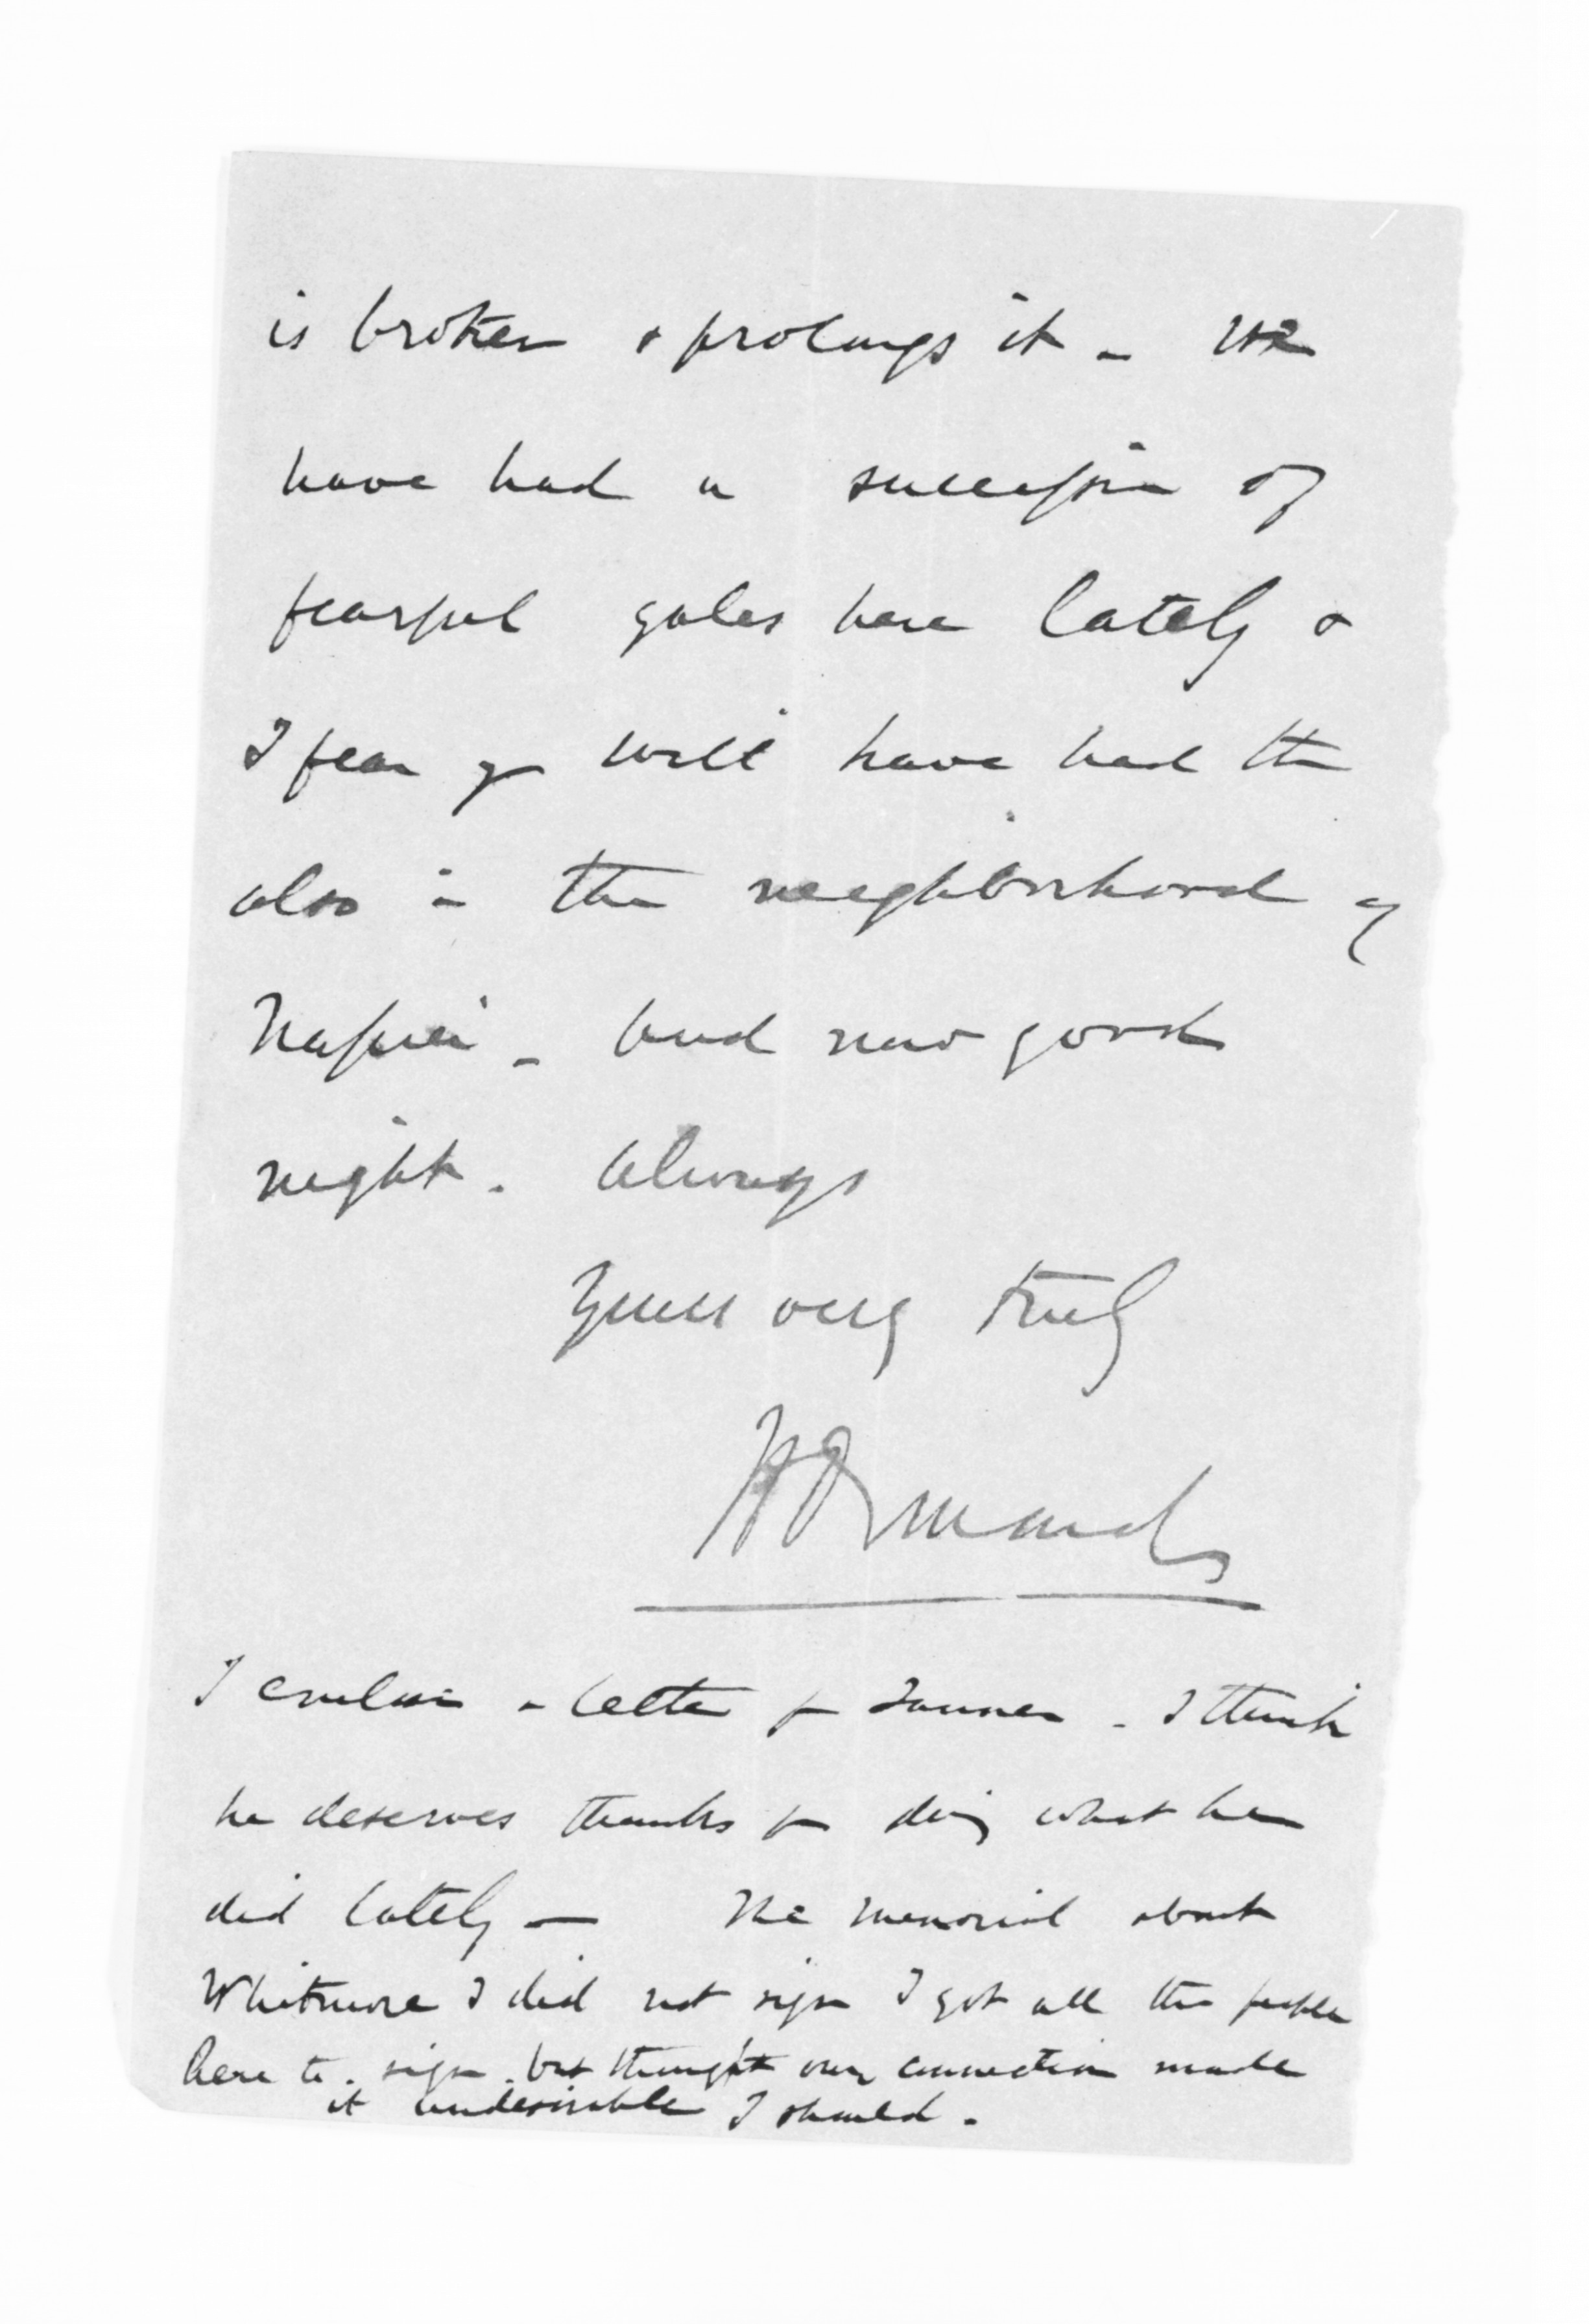 is broken & prolongs it - We
have had a succession of
fearful gales here lately &
I fear you will have had them
also in the neighborhood of
Napier - And now good
night. Always
Yours very truly
J D Ormond
I enclose a letter for Tanner - I think
he deserves thanks for doing what he
did lately - The memorial about
Whitmore I did not sign I got all the people
here to sign but thought our connection made
it undesirable I should.